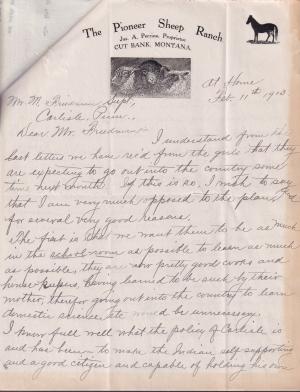 The Pioneer Sheep Ranch
Jas. A. Perrine, Proprietor
CUT BANK, MONTANA.
At Home
Feb. 11th 1913
Mr. M. Friedman Supt,
Carlisle, Penn.,
Dear Mr. Friedman:
I understand from the
last letters we have rec'd from the girls that they
are expecting to go out into the country some
time next month. If this is so, I wish to say
that I am very much opposed to the plan, and
for several very good reasons.
The first is that we want them to be as much
in the school room as possible to learn as much
as possible, they are now pretty good cooks and
house keepers, having learned to be such by their
mother, therefor going out into the country to learn
domestic science, etc would be unnecessary.
I know full well what the policy of Carlisle is
and has been to make the Indian self supporting
and a good citizen and capable of holding his own